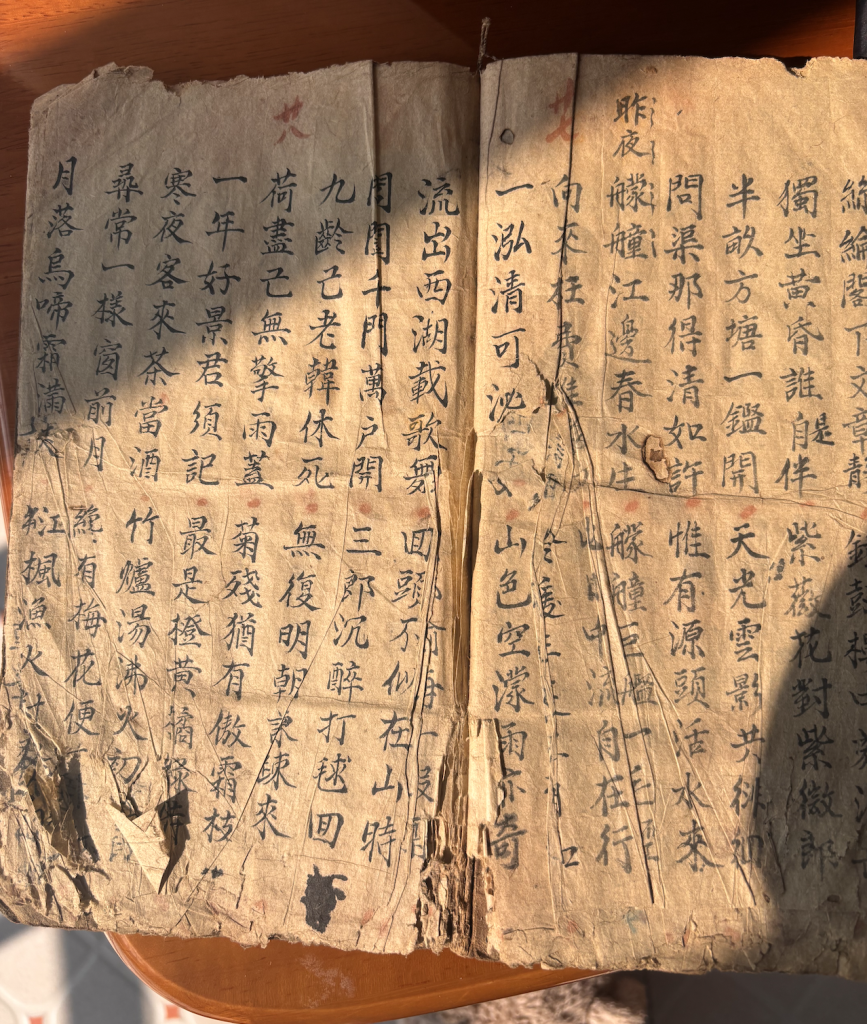 廿七
絲綸閣下文章靜 鐘鼓樓中
獨坐黃昏誰是自伴 紫薇花對紫微郎
半畝方塘一鑑開 天光雲影共徘徊
問渠那得清如許 惟有源頭活水來
昨夜艨艟江邊春水生 艨艟巨艦一毛
向來枉費推 此日中流自在行
一泓清可沁 山色空濛雨亦奇
廿八
流出西湖載歌舞 回頭不似在山時
周圍千門萬戶開 三郎沉醉打毬回
九齡已老韓休死 無復明朝諫疎來
荷盡已無擎雨蓋 菊殘猶有傲霜枝
一年好景君須記 最是橙黃橘綠
寒夜客來茶當酒 竹爐湯沸火初
尋常一樣窗前月 纔有梅花便
月落烏啼霜滿天 江楓漁火對愁